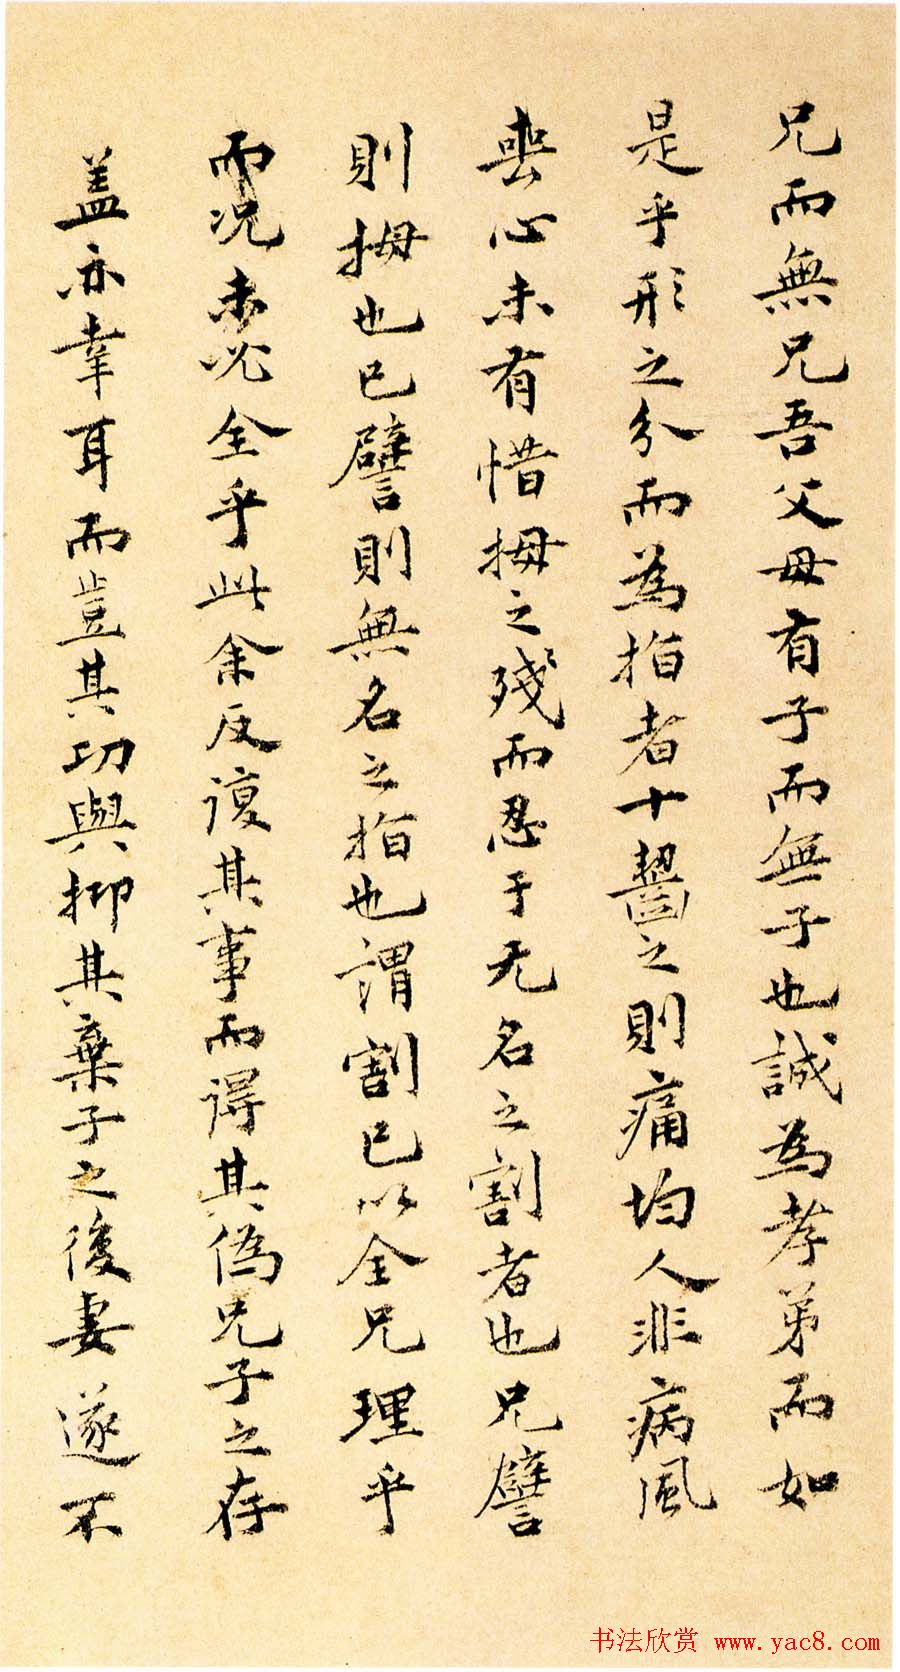 兄而無兄吾父母有子而無子也誠為孝弟而如
是乎形之分而為指者十齧之則痛均人非病風
喪心未有惜拇之殘而忍于无名之割者也兄譬
則拇也已譬則無名之指也謂割已以全兄理乎
而况未必全乎此余反復其事而得其偽兄子之存
盖亦幸耳而豈其功與抑其棄子之後妻遂不
书法欣赏 www.yac8.com